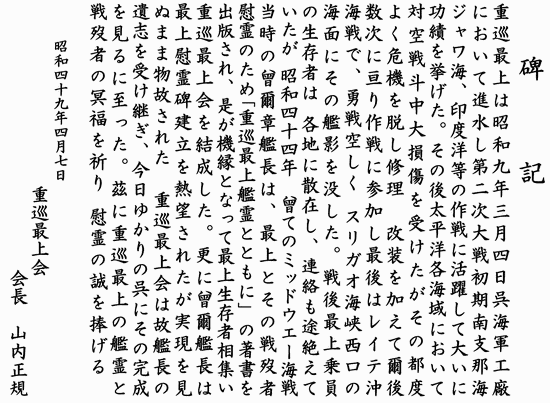 碑記
重巡最上は昭和九年三月四日呉海軍工廠
において進水し第二次大戦初期南支那海
ジャワ海、印度洋等の作戦に活躍して大いに
功績を挙げた。その後太平洋各海域において
対空戦斗中大損傷を受けたがその都度
よく危機を脱し修理　改装を加えて爾後
数次に亘り作戦に参加し最後はレイテ沖
海戦で、勇戦空しく　スリガオ海峡西口の
海面にその艦影を没した。戦後最上乗員
の生存者は　各地に散在し、連絡も途絶えて
いたが　昭和四十四年　曾てのミッドウエー海戦
当時の曾爾章艦長は、最上とその戦歿者
慰霊のため「重巡最上艦霊とともに」の著書を
出版され、是が機縁となって最上生存者相集い
重巡最上会を結成した。更に曾爾艦長は
最上慰霊碑建立を熱望されたが実現を見
ぬまま物故された　重巡最上会は故艦長の
遺志を受け継ぎ、今日ゆかりの呉にその完成
を見るに至った。茲に重巡最上の艦霊と
戦歿者の冥福を祈り　慰霊の誠を捧げる
昭和四十九年四月七日
重巡最上会
会長　山内正規